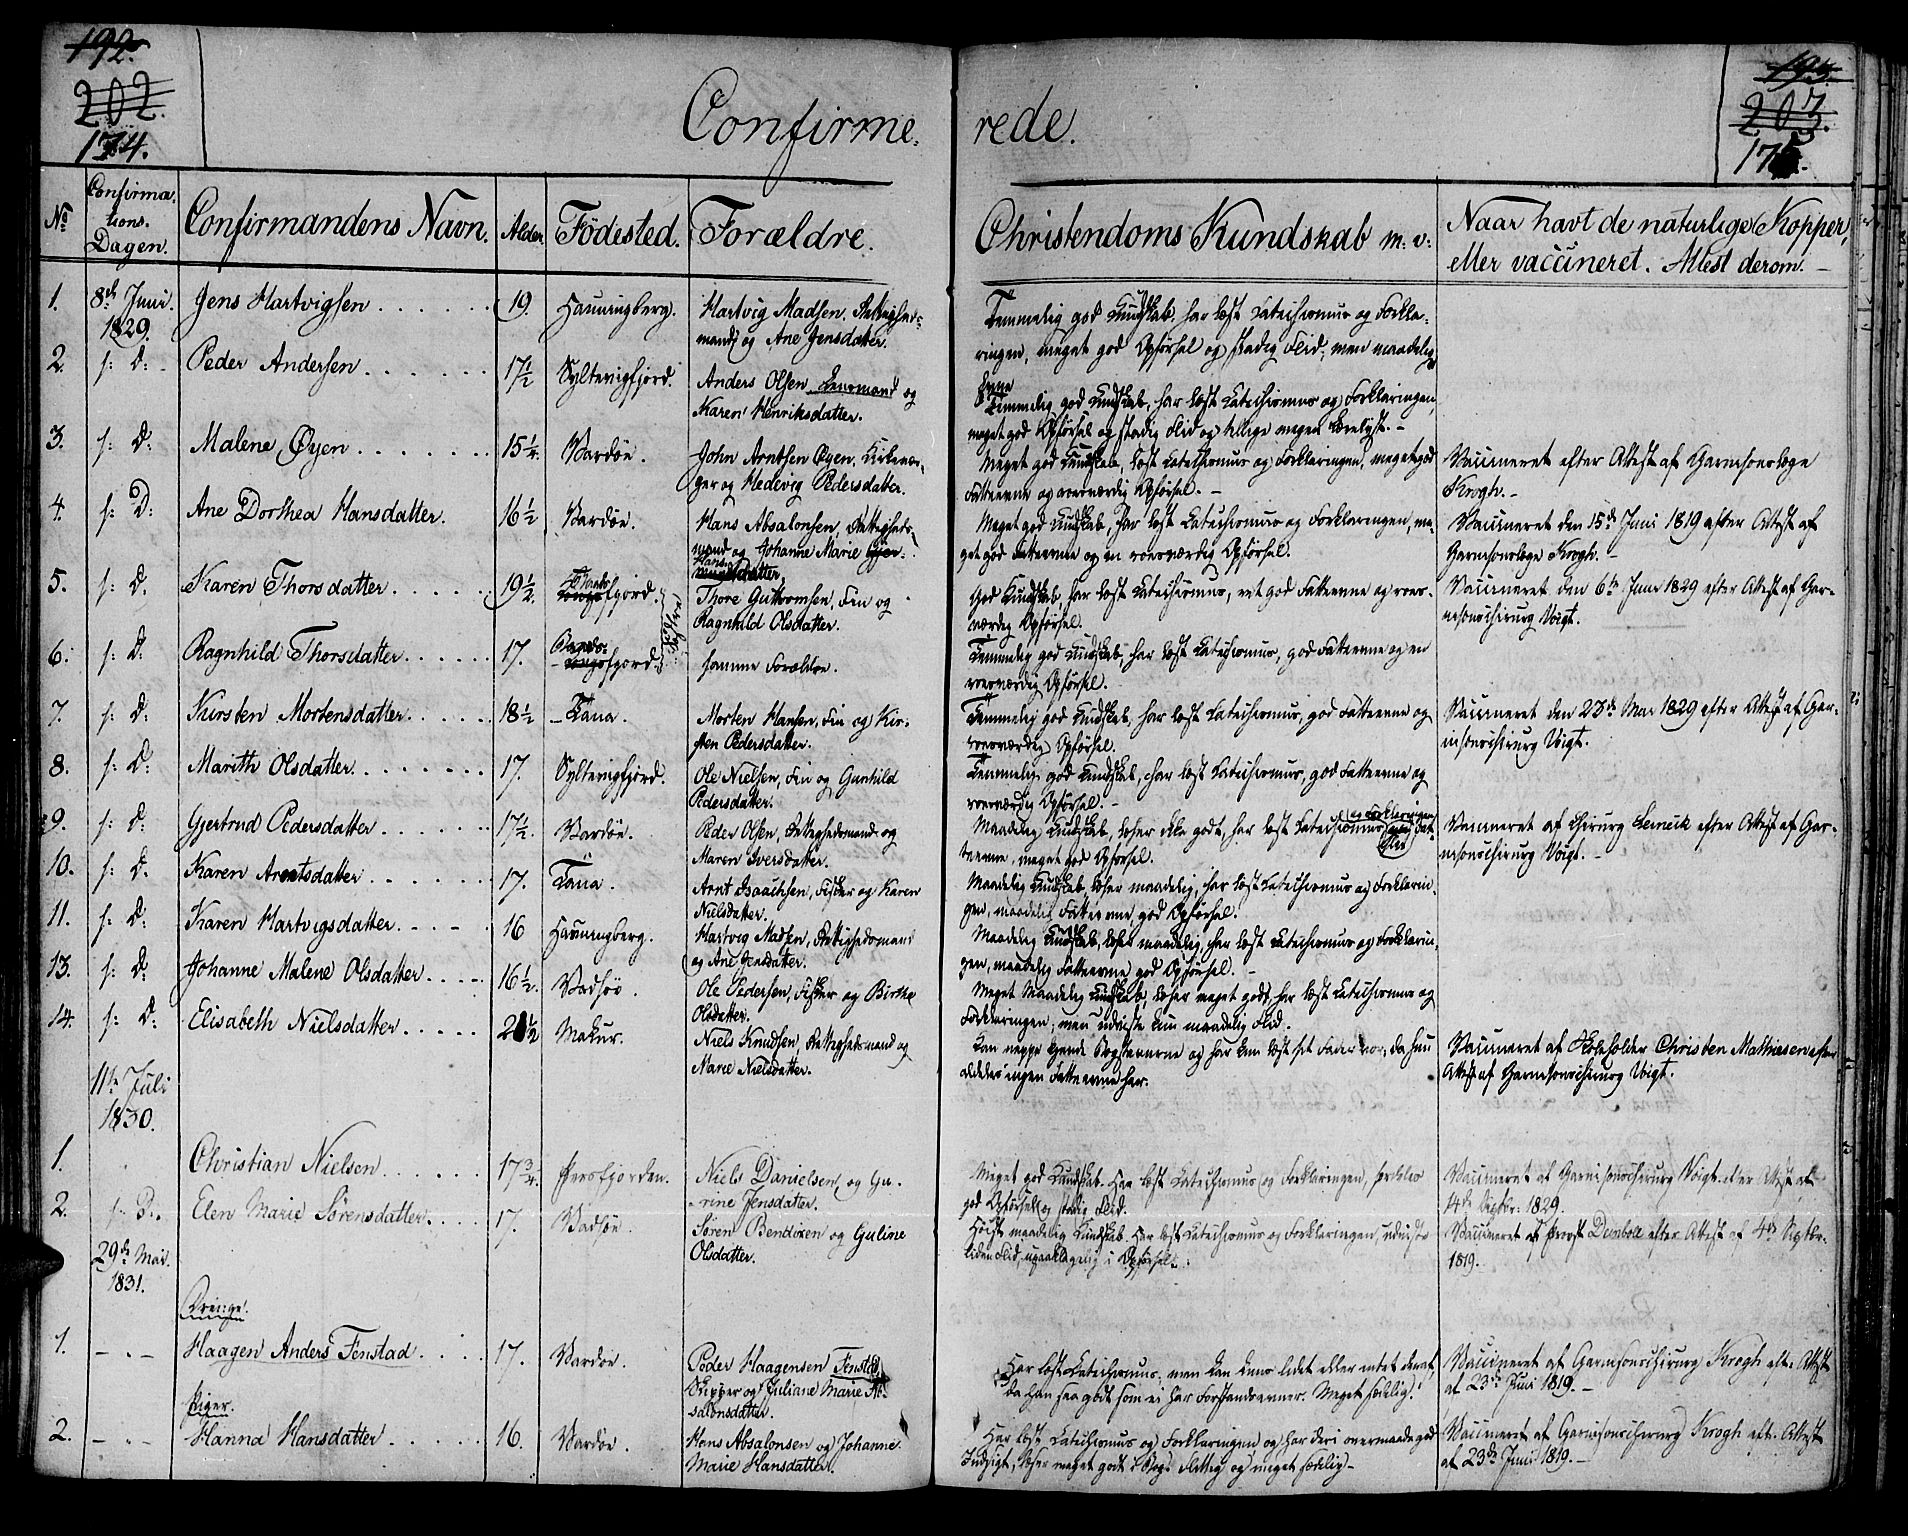 192.
202.
174.
Confirme. rede.
193.
203.
175.
No
Confirma,
tions.
Dagen.
Confirmandens Navn.
Alder.
Födested.
Forældre.
Christendoms Kundskab m: v:
Naar havt de naturlige Kopper,
eller vaccineret. Attest derom. –
1. 8de Juni 1829. Jens Hartvigsen 19. Havningberg. Hartvig Madsen, Rettigheds-
mand og Ane Jensdatter.
Temmelig god Kundskab, har læst Catechismus og Forkla-
ringen, meget god Opførsel og stadig Flid; men maadelig
Evne
2. s: D: Peder Andersen 17 1/2 Syltevigfjord. Anders Olsen, Lensmand og
Karen Henriksdatter.
Temmelig god Kundskab, har læst Catechismus og Forklaringen,
meget god Opførsel og stadig Flid og tillige megen Lærelyst. –
3. s: D: Malene Øyen 15 1/4. Vardøe. John Arntsen Øyen, Kirkevær-
ger og Hedevig Pedersdatter.
Meget god Kundskab, læst Catechismus og Forklaringen, meget god
Fatteevne og roesværdig Opførsel. –
Vaccineret efter Attest af Garnisonslæge
Krogh. –
4. s: D: Ane Dorthea Hansdatter. 16 1/2 Vardøe. Hans Absalonsen, Rettigheds-
mand og Johanne Marie
Hans-
datter.
Meget god Kundskab, har læst Catechismus og Forklaringen, me-
get god Fatteevne og en roesværdig Opførsel.
Vaccineret den 15de Juni 1819 efter Attest af
Garnisonslæge Krogh. –
5. s: D. Karen Thorsdatter 19 1/2. fjord. Thore Guttormsen, Fin og
Ragnhild Olsdatter.
God Kundskab, har læst Catechismus, ret god Fatteevne og roes-
værdig Opførsel.
Vaccineret den 6te Juni 1829 efter Attest af Gar-
nisonschirurg Voigt.
6. s: D. Ragnhild Thorsdatter 17. fjord. samme Forældre.
Temmelig god Kundskab, har læst Catechismus, god Fatteevne og en
roesværdig Opførsel.
7. s: D: Kirsten Mortensdatter 18 1/2 – Tana. Morten Hansen, Fin og Kir-
sten Pedersdatter.
Temmelig god Kundskab, har læst Catechismus, god Fatteevne og
roesværdig Opførsel.
Vaccineret den 23de Mai 1829 efter Attest af Gar-
nisonschirurg Voigt.
8. s: D: Marith Olsdatter 17. Syltevigfjord. Ole Nielsen, Fin og Gunhild
Pedersdatter.
Temmelig god Kundskab, har læst Catechismus, god Fatteevne og
roesværdig Opførsel. –
9. s: D: Gjertrud Pedersdatter 17 1/2. Vardøe. Peder Olsen, Rettighedsmand og
Maren Iversdatter.
og Forklaringen
Maadelig Kundskab, læser ikke godt, har læst Catechismus Fat-
teevne, meget god Opførsel.
Vaccineret af Chirurg efter Attest af Gar-
nisonschirurg Voigt. –
10. s: D. Karen Arntsdatter 17. Tana. Arnt Isaachsen, Fisker og Karen
Nielsdatter.
Maadelig Kundskab, læser maadelig, har læst Catechismus og Forklarin-
gen, maadelig Fatteevne, god Opførsel.
11. s: D: Karen Hartvigsdatter 16 Havningberg. Hartvig Madsen, Rettighedsmand
og Ane Jensdatter.
Maadelig Kundskab, læser maadelig, har læst Catechismus og Forklarin-
gen, maadelig Fatteevne, god Opførsel. –
13. s: D: Johanne Malene Olsdatter 16 1/2. Vadsöe. Ole Pedersen, Fisker og Birthe
Olsdatter.
Meget Maadelig Kundskab, læser meget godt, har læst Catechismus og
Forklaringen; men udviste kun maadelig Flid.
14. s: D: Elisabeth Nielsdatter 21 1/2 Makur. Niels Knudsen, Rettighedsmand og
Marie Nielsdatter.
Kan neppe kjende Bogstaverne og har kun læst sit Fader vor, da hun
aldeles ingen Fatteevne har.
Vaccineret af Skoleholder Christen Mathiesen efter
Attest af Garnisonschirurg Voigt.
11te Juli
1830.
1. Christian Nielsen 17 3/4. Persfjorden. Niels Danielsen og Gu-
rine Jensdatter.
Meget god Kundskab. Har læst Catechismus og Forklaringen, særdeles
god Opførsel og stadig Flid.
Vaccineret af Garnisonschirurg Voigt efter Attest af
14de Septbr: 1829.
2. Elen Marie Sörensdatter. 17. Vadsöe. Sören Bendixen og Guline
Olsdatter.
Høist maadelig Kundskab. Har læst Catechismus og Forklaringen, udviste
liden Flid, upaaklagelig i Opførsel.
Vaccineret af Provst Deinboll efter Attest af 4de Septbr.
1819.
29de Mai.
1831.
Drenge.
1. – „ – Haagen Anders Fenstad 17. Vardøe. Peder Haagensen Fenstad,
Skipper og Juliane Marie Ab-
salonsdatter.
Har læst Catechismus, men kan kun lidet eller intet deraf,
da han saa godt som ei har Forstandsevner. Meget sædelig.
Vaccineret af Garnisonschirurg Krogh eft. Attest
af 23de Juni 1819. –
Piger.
2. – „ – Hanna Hansdatter 16. Vardøe. Hans Absalonsen og Johanne
Marie Hansdatter.
Har læst Catechismus og Forklaringen og har deri overmaade god
Indsigt, læser meget godt i Bog. Flittig og meget sædelig –
Vaccineret af Garnisonschirurg Krogh eft. Attest
af 23de Juni 1819. –